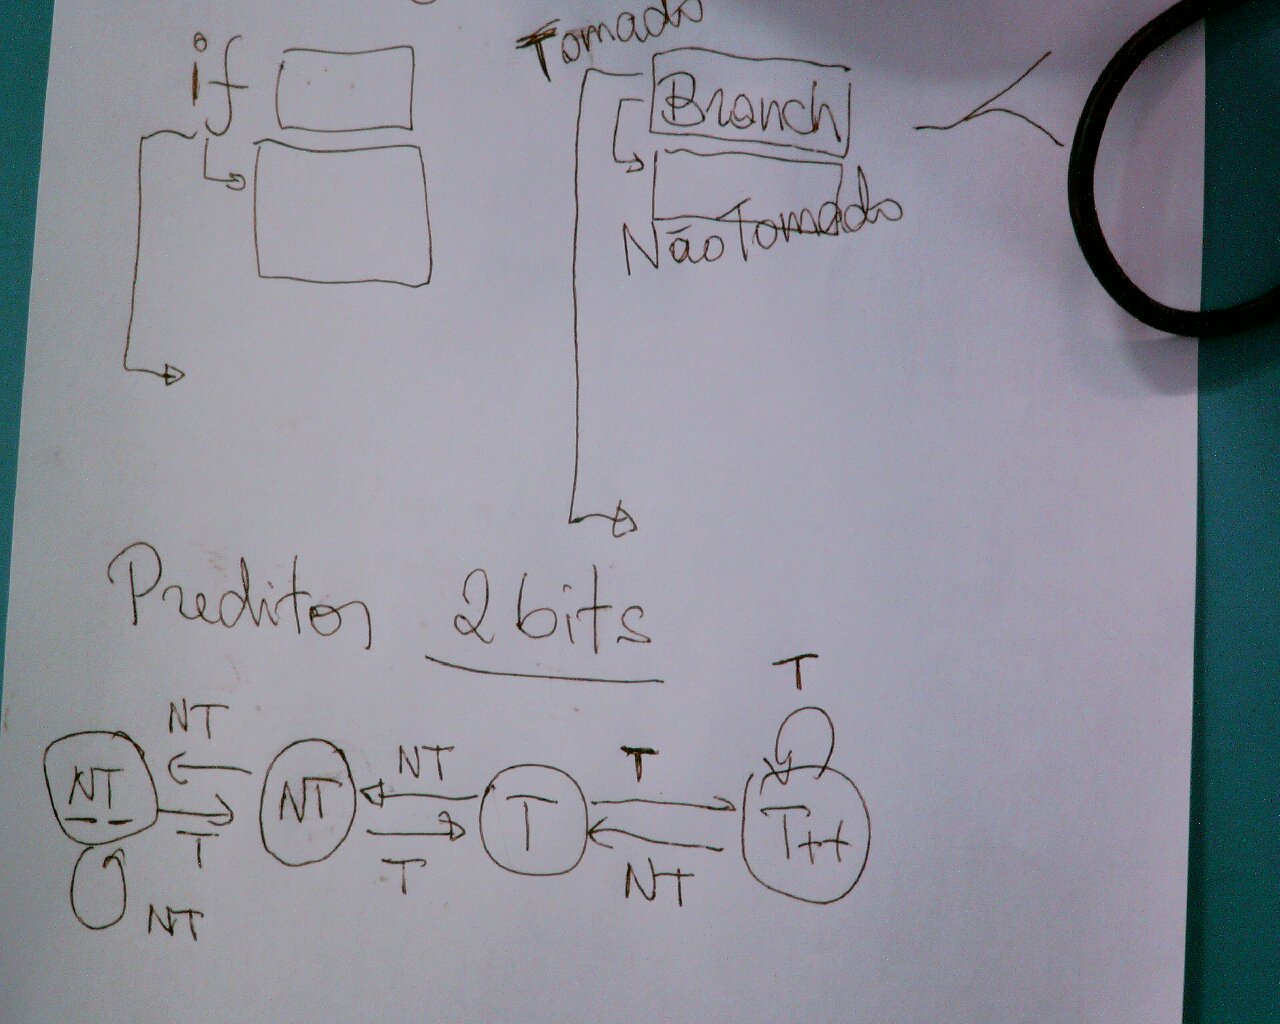 if
Tomado
Branch
Não Tomado
Preditor 2 bits
T
NT NT T
NT NT T T++
T T NT
NT